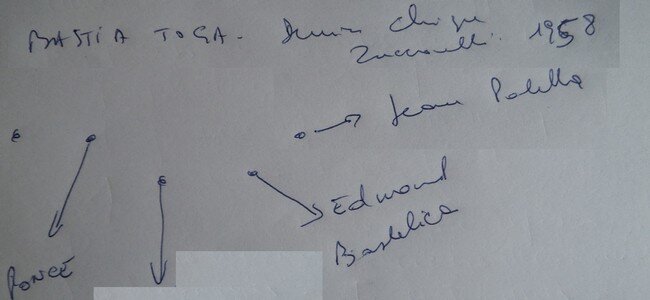 BASTIA TOGA. Zuccarelli. 1958
Jean Polella
Edmond
Bastelica
PONCÉ